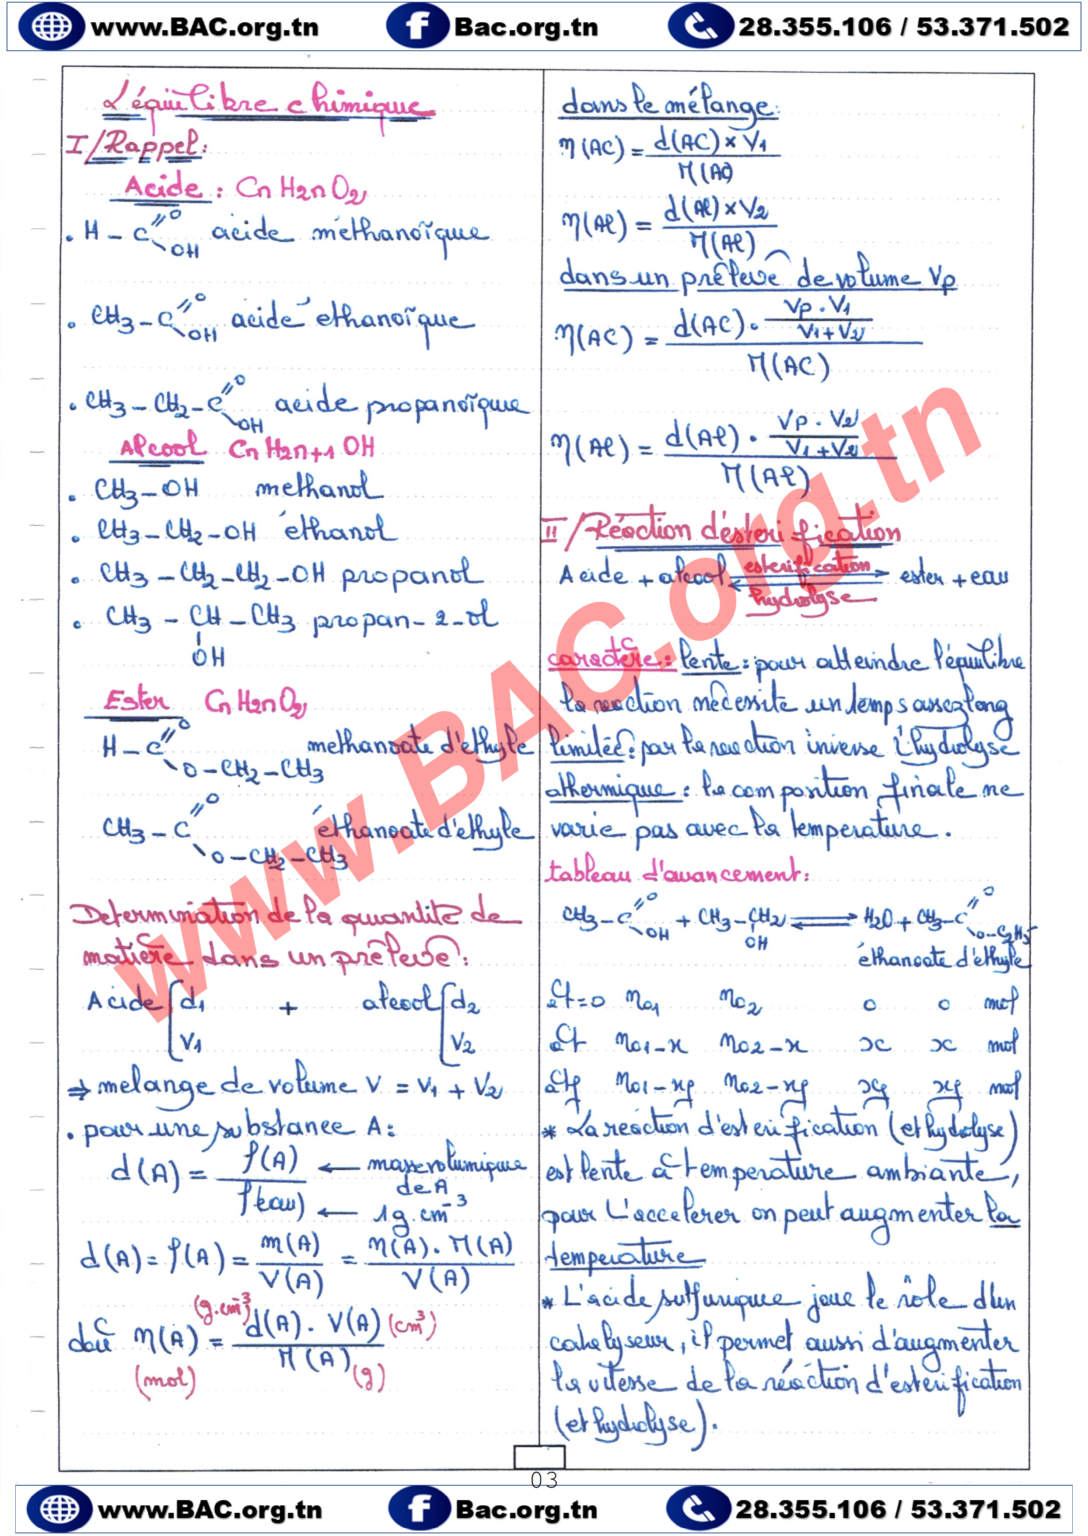 www.BAC.org.tn Bac.org.tn 28.355.106 / 53.371.502
L'équilibre chimique
I/Rappel:
Acide : CnH2nO2
. H - C //O \OH acide méthanoïque
. CH3 - C //O \OH acide éthanoïque
. CH3 - CH2 - C //O \OH acide propanoïque
Alcool CnH2n+1 OH
. CH3 - OH methanol
. CH3 - CH2 - OH éthanol
. CH3 - CH2 - CH2 - OH propanol
. CH3 - CH - CH3 propan-2-ol
OH
Ester CnH2nO2
H - C //O \O - CH2 - CH3 methanoate d'éthyle
CH3 - C //O \O - CH2 - CH3 éthanoate d'éthyle
Determination de la quantité de
matière dans un prélevé:
Acide { d1 V1 + alcool { d2 V2
⇒ melange de volume V = V1 + V2
. pour une substance A:
d(A) = ρ(A) / ρ(eau) ← masse volumique de A ← 1g.cm⁻³
d(A) = ρ(A) = m(A) / V(A) = n(A). M(A) / V(A)
d'où n(A) (mol) = (g.cm⁻³) d(A) . V(A) (cm³) / M(A) (g)
dans le mélange:
n(AC) = d(AC) x V1 / M(AC)
n(Al) = d(Al) x V2 / M(Al)
dans un prélevé de volume Vp
n(AC) = d(AC) . Vp . V1 / V1 + V2 / M(AC)
n(Al) = d(Al) . Vp . V2 / V1 + V2 / M(Al)
II/Réaction d'ésterification
Acide + alcool esterification ⇌ hydrolyse ester + eau
caractère: lente: pour atteindre l'équilibre
la reaction nécessite un temps assez long
limitée: par la reaction inverse l'hydrolyse
athermique: la composition finale ne
varie pas avec la temperature.
tableau d'avancement:
CH3 - C //O \OH + CH3 - CH2 OH ⇌ H2O + CH3 - C //O \O - C2H5
éthanoate d'éthyle
à t=0 n01 n02 0 0 mol
à t n01-x n02-x x x mol
à tf n01-xf n02-xf xf xf mol
* La réaction d'esterification (et hydolyse)
est lente à temperature ambiante,
pour L'accelerer on peut augmenter la
temperature
* L'acide sulfurique joue le rôle d'un
catalyseur, il permet aussi d'augmenter
la vitesse de la réaction d'esterification
(et hydrolyse).
www.BAC.org.tn
03
www.BAC.org.tn Bac.org.tn 28.355.106 / 53.371.502